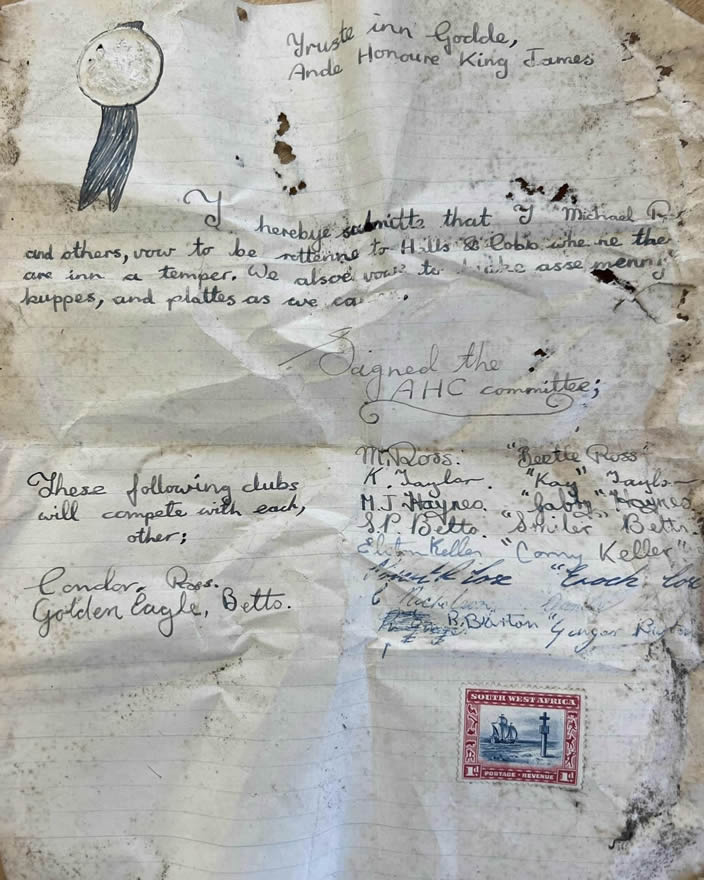 Yruste inn Godde,
Ande Honoure King James
I hereby submitte that I Michael
and others, vow to be rotten to Hills & Cobb the
are inn a temper. We alsoe vow to asse menny
kuppes, and plattes as we ca
Signed the
AHC committee;
M. Ross. "Beetle Ross"
K. Taylor. "Kay" Taylor
M.J Haynes. "Gabby" Haynes
S.P Betts. "Smiler" Betts.
Keller "Corny Keller"
"Enoch"
R. Burton "Ginger
These following clubs
will compete with each,
other;
Condor, Ross.
Golden Eagle, Betts.
SOUTH WEST AFRICA
1d POSTAGE · REVENUE 1d